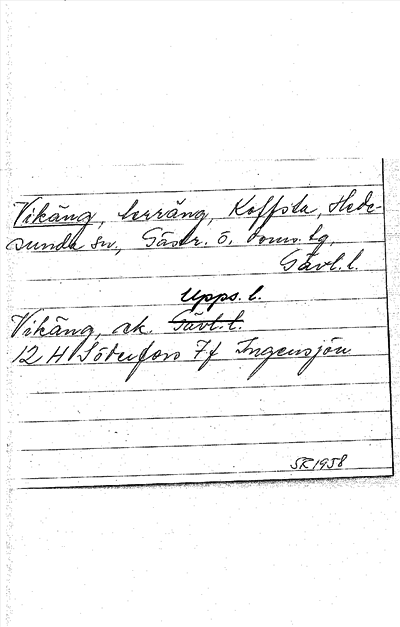 Vikäng, terräng, Koffsta, Hede-
sunda sn, Gästr. ö. doms. lg,
Gävl. l.
Upps. l.
Vikäng, ek. Gävl. l.
12 H Söderfors 7f Ingensjön
SR 1958